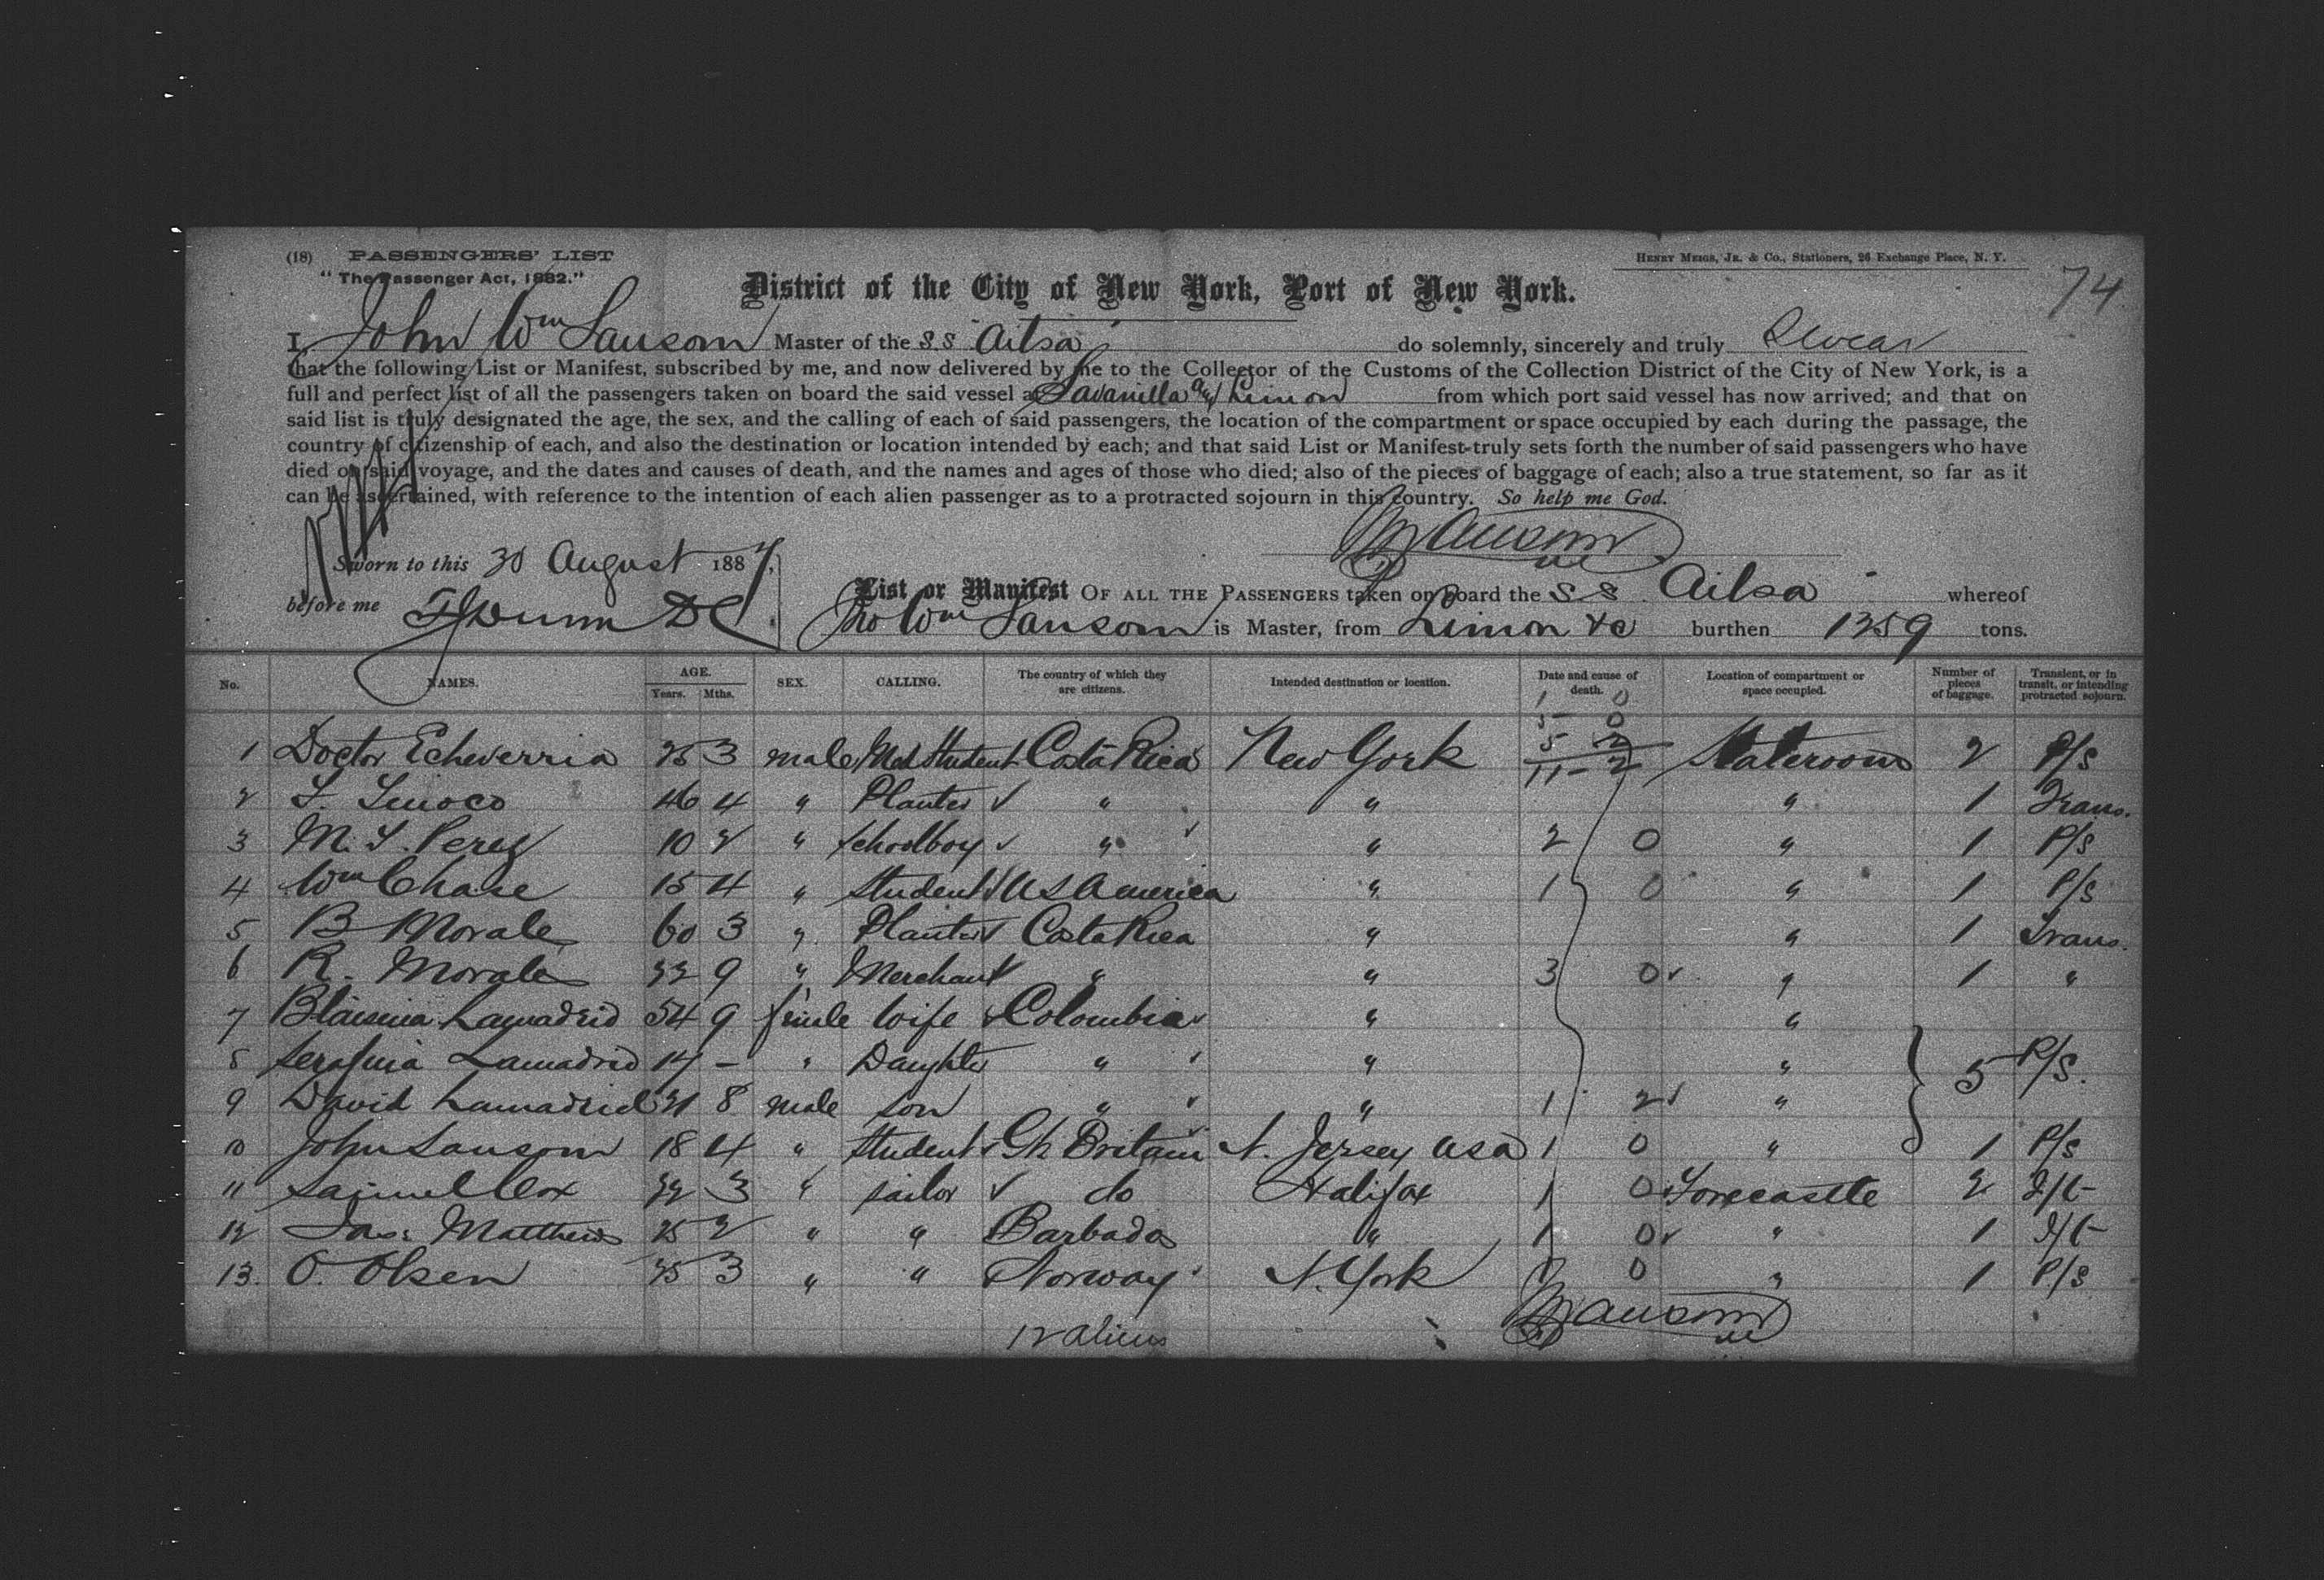 (18) PASSENGERS' LIST
HENRY MEIGS, JR. & CO., Stationers, 26 Exchange Place, N. Y.
"The Passenger Act, 1882."
74
District of the City of New York, Port of New York.
I, John Wm Sansom Master of the S.S. Ailsa do solemnly, sincerely and truly Swear
that the following List or Manifest, subscribed by me, and now delivered by me to the Collector of the Customs of the Collection District of the City of New York, is a
full and perfect list of all the passengers taken on board the said vessel at Savanilla and Limon from which port said vessel has now arrived; and that on
said list is truly designated the age, the sex, and the calling of each of said passengers, the location of the compartment or space occupied by each during the passage, the
country of citizenship of each, and also the destination or location intended by each; and that said List or Manifest truly sets forth the number of said passengers who have
died on said voyage, and the dates and causes of death, and the names and ages of those who died; also of the pieces of baggage of each; also a true statement, so far as it
can be ascertained, with reference to the intention of each alien passenger as to a protracted sojourn in this country. So help me God.
JWSansom
Sworn to this 30 August 1887,
before me FJDunn DC
List or Manifest OF ALL THE PASSENGERS taken on board the SS Ailsa whereof
Jno Wm Sansom is Master, from Limon &c burthen 1359 tons.
No. NAMES. AGE. Years. Mths. SEX. CALLING. The country of which they are citizens. Intended destination or location. Date and cause of death. Location of compartment or space occupied. Number of pieces of baggage. Transient, or in transit, or intending protracted sojourn.
1 0
5 0
5 2
11 - 2
1 Doctor Echeverria 25 3 male Med Student Costa Rica New York Stateroom 2 P/S
2 46 4 " Planter " " " 1 Trans.
3 M. Perez 10 2 " schoolboy " " 2 0 " 1 P/S
4 Wm Chase 15 4 " student US America " 1 0 " 1 P/S
5 B Morales 60 3 " Planter Costa Rica " " 1 Trans.
6 R. Morales 22 9 " Merchant " " 3 0 " 1 "
7 Lamadrid 54 9 female Wife Colombia " "
8 Lamadrid 14 - " Daughter " " " 5 P/S.
9 David Lamadrid 21 8 male son " " 1 2 "
10 John Sansom 18 4 " student Gt Britain N. Jersey USA 1 0 " 1 P/S
11 Samuel Cox 22 3 " sailor do Halifax 1 0 Forecastle 2 I/t
12 Jas: Matthews 25 2 " " Barbados " 1 0 " 1 I/t
13. O. Olsen 25 3 " " Norway N. York 1 0 " 1 P/S
12 aliens
JWSansom